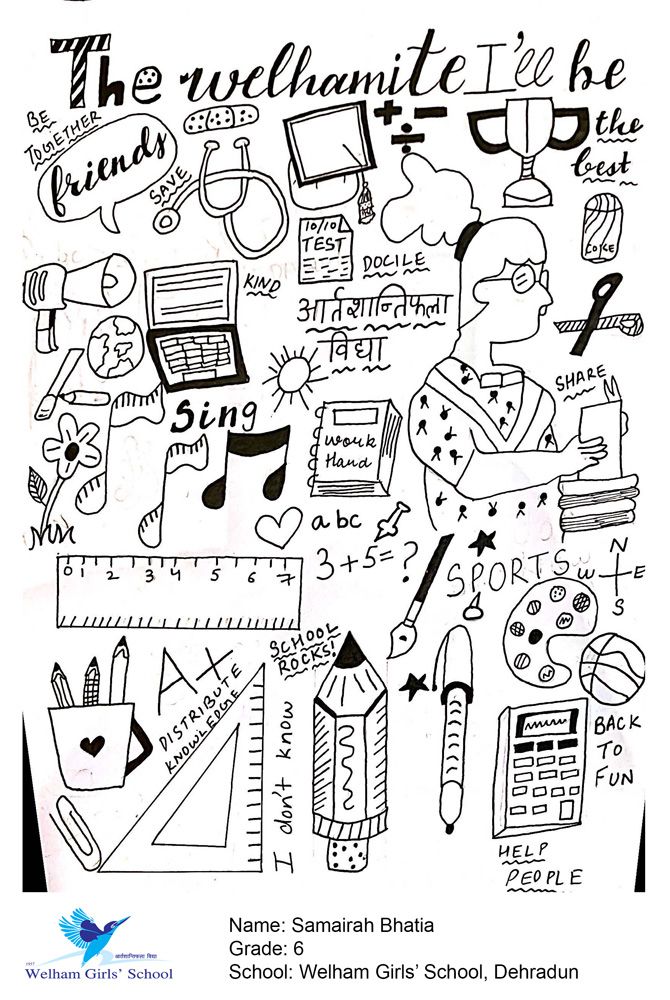 The welhamite I'll be
the
best
BE
TOGETHER
friends
SAVE
+ −
÷
10/10
TEST
COKE
KIND
DOCILE
आर्तशान्तिफला
विद्या
SHARE
Sing
Work
Hand
abc
3+5=?
0 1 2 3 4 5 6 7
SPORTS
N
W E
S
SCHOOL
ROCKS!
A+
DISTRIBUTE
KNOWLEDGE
I don't know
BACK
TO
FUN
HELP
PEOPLE
Name: Samairah Bhatia
Grade: 6
School: Welham Girls' School, Dehradun
1957
आर्तशान्तिफला विद्या
Welham Girls' School